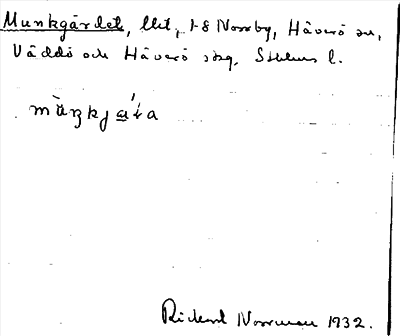 Munkgärdet, llet, 1-8 Norrby, Häverö sn,
Väddö och Häverö skg, Sthlms l.
Rickard Norrman 1932.